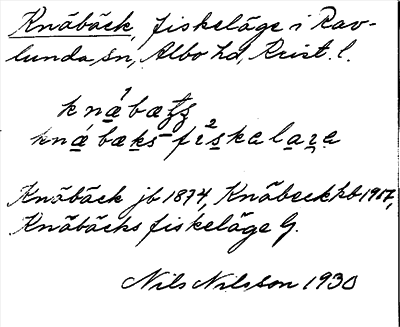 Knäbäck, fiskeläge i Rav-
lunda sn, Albo hd, Krist. l.
knäbäck jb 1874, Knäbeck hb 1917,
Knäbäcks fiskeläge G.
Nils Nilsson 1930